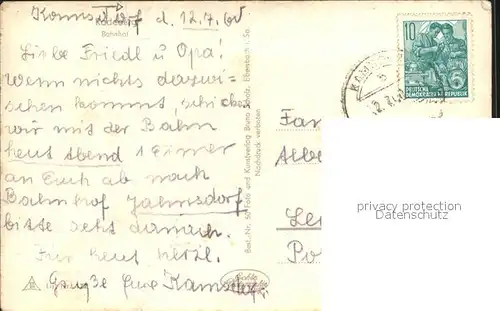 Kamsdorf d. 12.7.60
Bahnhof
Liebe Friedl u Opa!
Wenn nichts dazwi-
schen kommt, schicken
wir mit der Bahn
heut Abend 1 Eimer
an Euch ab nach
Bahnhof Jahnsdorf
bitte seht danach.
Für heut herzl.
Grüße Eure Kamsdorf.
Best.-Nr. Foto und Kunstverlag Bruno Scholz, Ebersbach i. Sa.
Nachdruck verboten
10
DEUTSCHE
DEMOKRATISCHE REPUBLIK
Fam
Albe
Po
privacy protection
Datenschutz
Echte